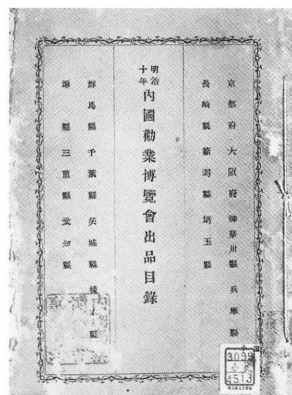 京都府 大阪府 神奈川縣 兵庫縣
長崎縣 新潟縣 埼玉縣
明治十年
內國勸業博覽會出品目錄
群馬縣 千葉縣 茨城縣 栃木縣
堺縣 三重縣 愛知縣
3099
4513